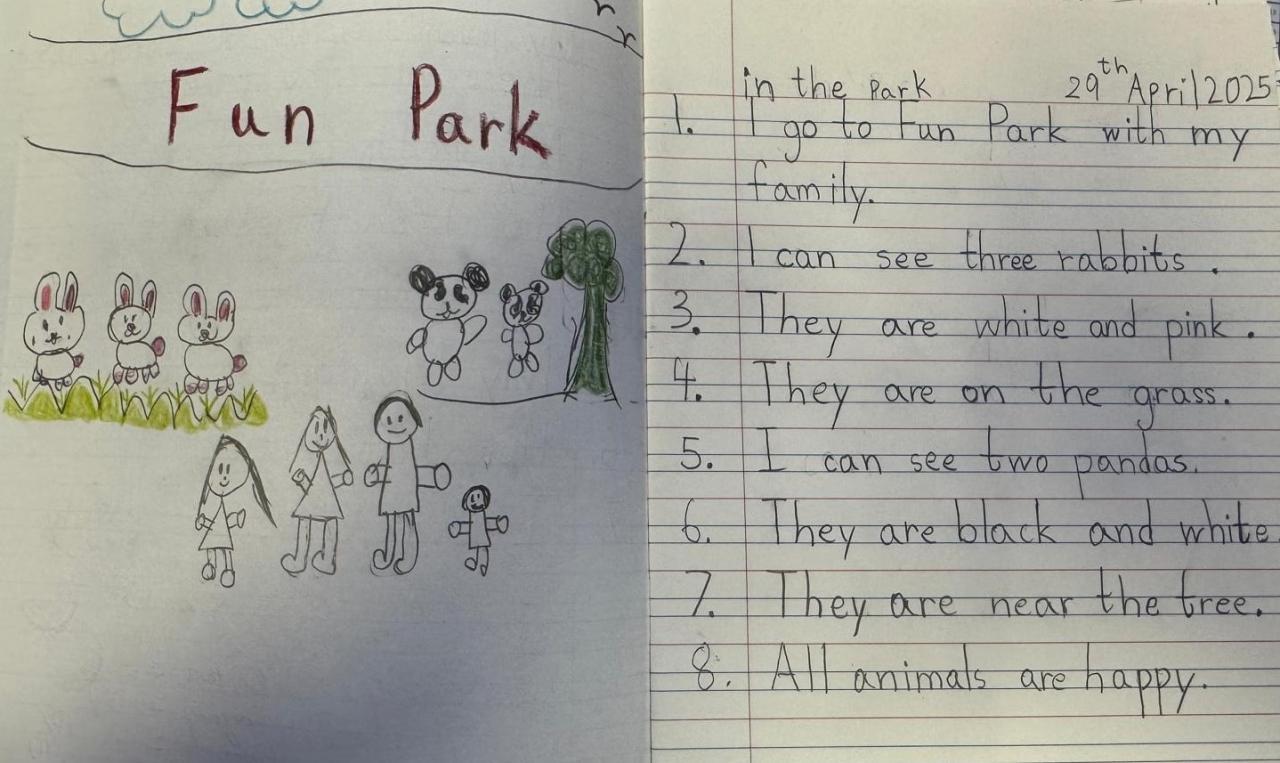 Fun Park
in the Park 29th April 2025
1. I go to Fun Park with my
family.
2. I can see three rabbits.
3. They are white and pink.
4. They are on the grass.
5. I can see two pandas.
6. They are black and white.
7. They are near the tree.
8. All animals are happy.